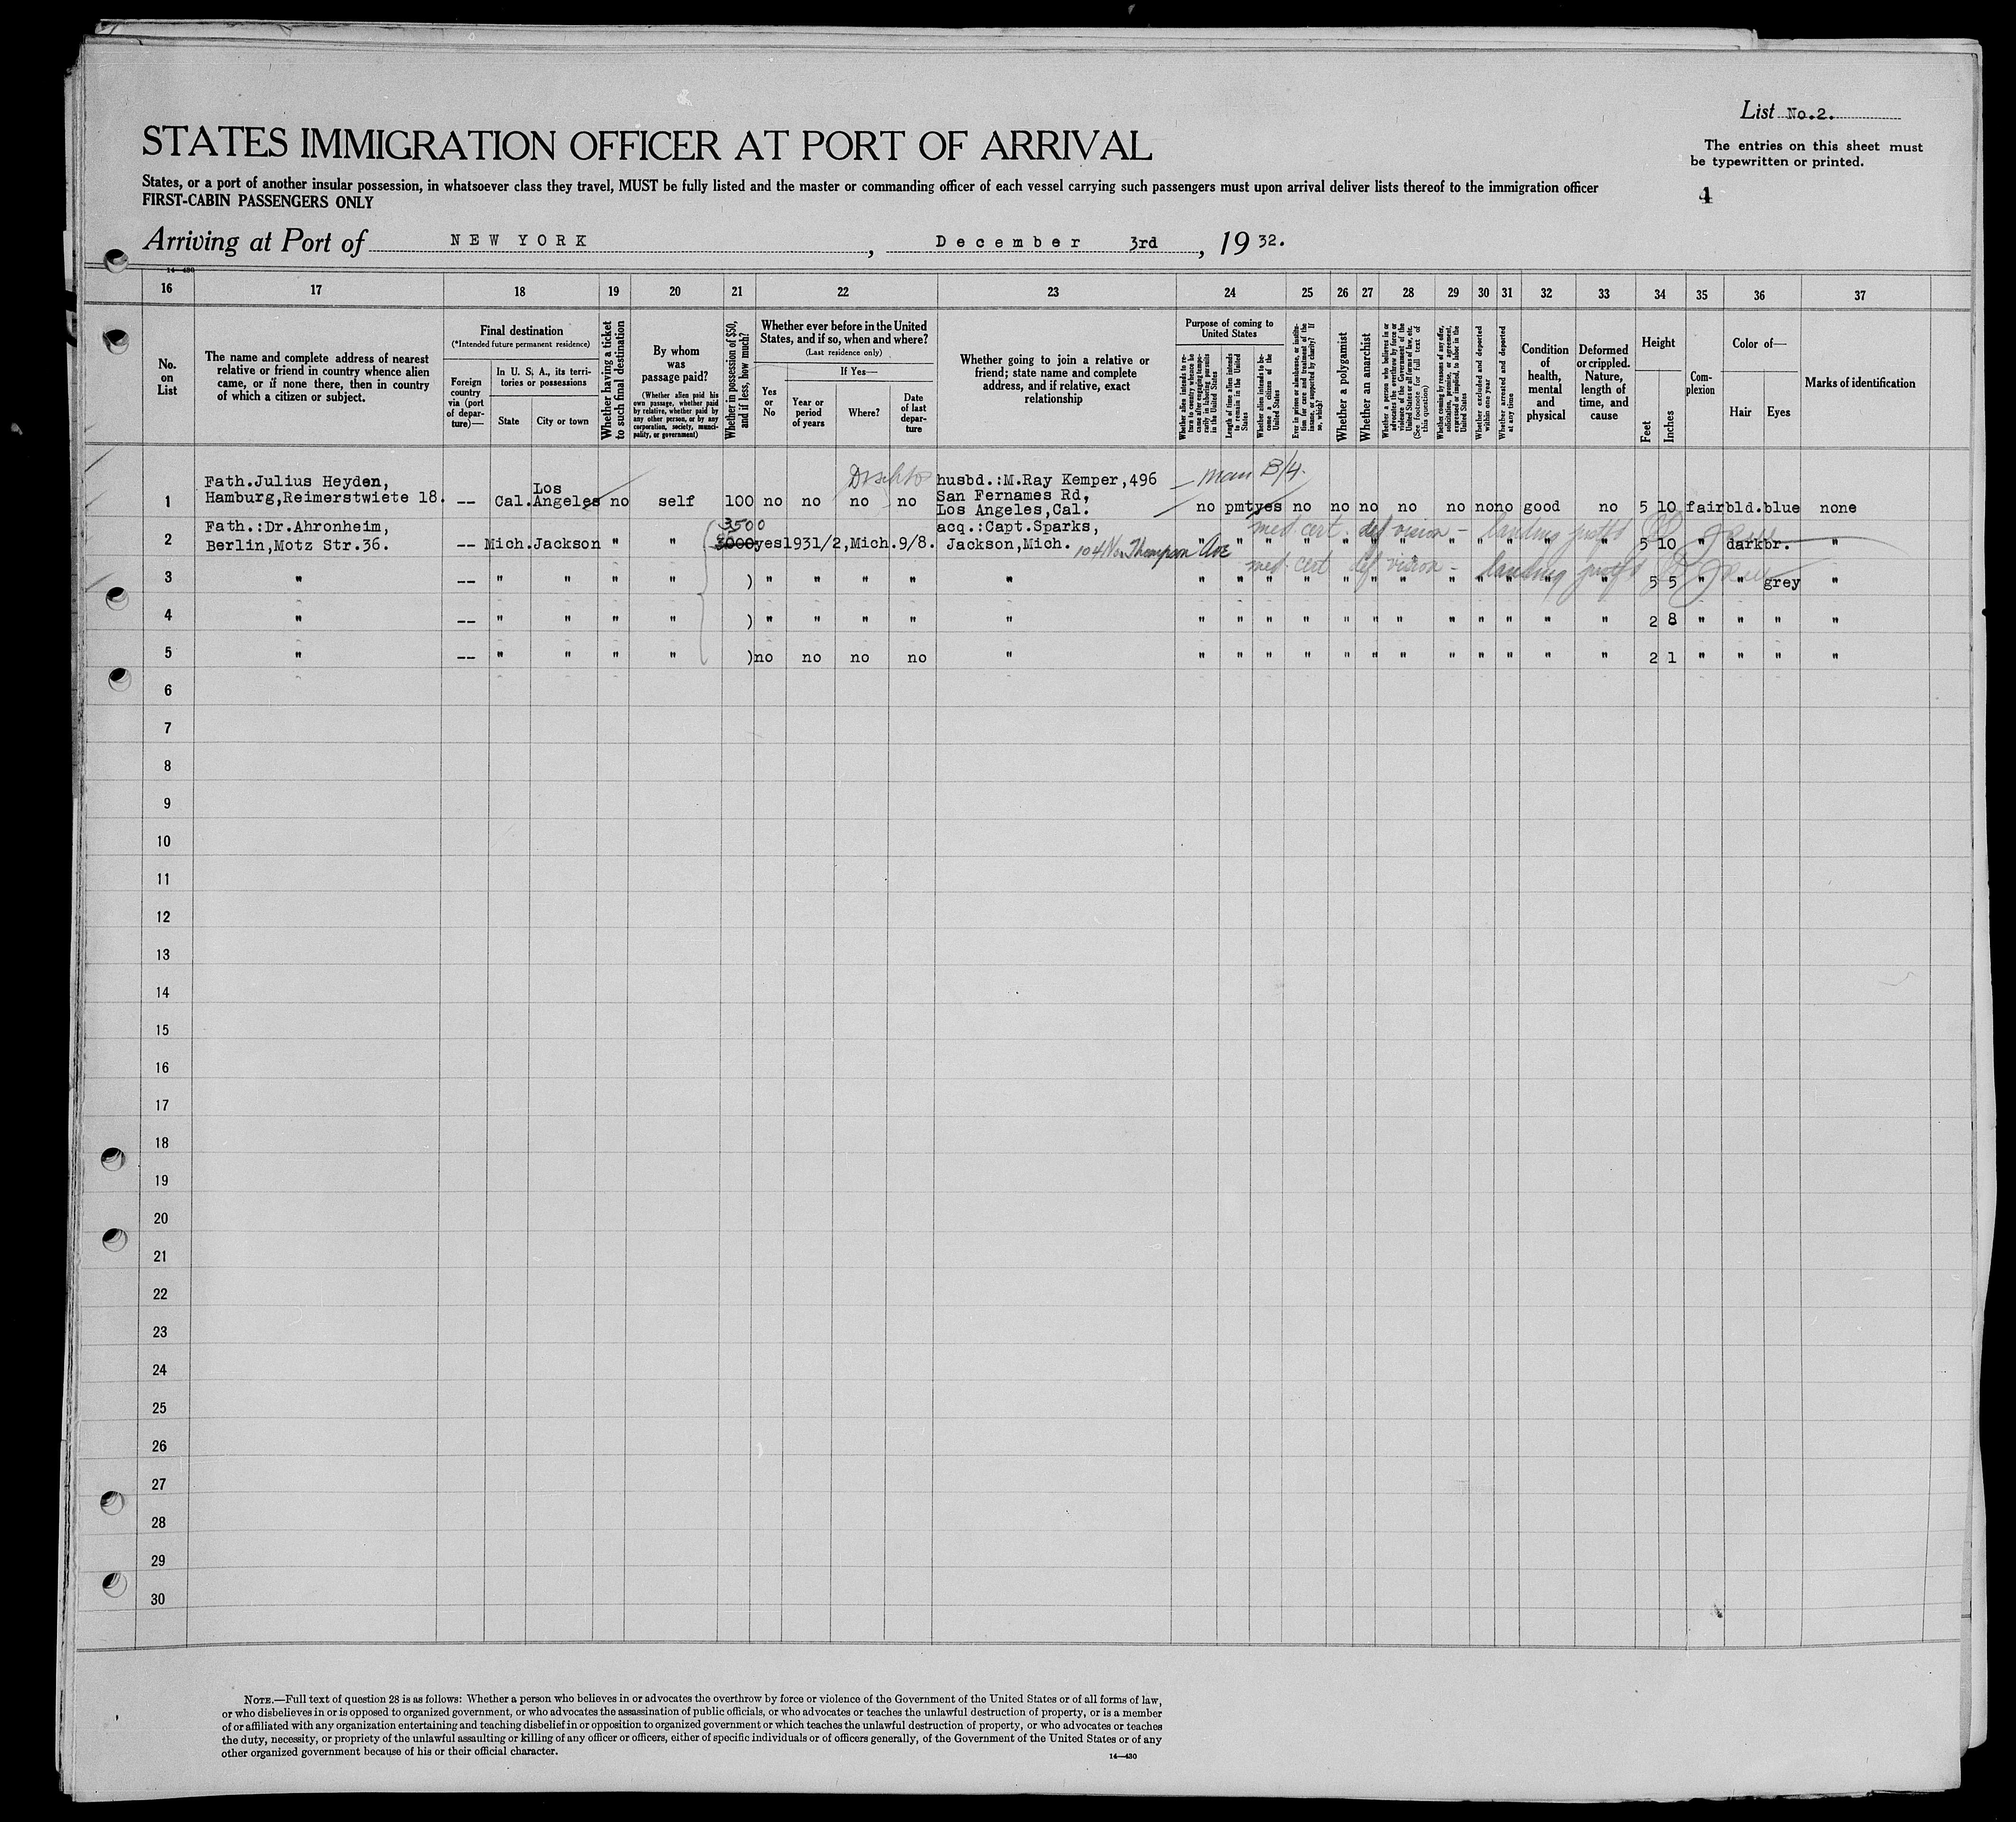 List No.2.
STATES IMMIGRATION OFFICER AT PORT OF ARRIVAL
The entries on this sheet must
be typewritten or printed.
States, or a port of another insular possession, in whatsoever class they travel, MUST be fully listed and the master or commanding officer of each vessel carrying such passengers must upon arrival deliver lists thereof to the immigration officer
FIRST-CABIN PASSENGERS ONLY
Arriving at Port of NEW YORK, December 3rd, 1932.
14—430
16 17 18 19 20 21 22 23 24 25 26 27 28 29 30 31 32 33 34 35 36 37
No. on List
The name and complete address of nearest relative or friend in country whence alien came, or if none there, then in country of which a citizen or subject.
Final destination
(*Intended future permanent residence)
Foreign country via (port of departure)—
In U. S. A., its territories or possessions
State
City or town
Whether having a ticket to such final destination
By whom was passage paid?
(Whether alien paid his own passage, whether paid by relative, whether paid by any other person, or by any corporation, society, municipality, or government)
Whether in possession of $50, and if less, how much?
Whether ever before in the United States, and if so, when and where?
(Last residence only)
Yes or No
If Yes—
Year or period of years
Where?
Date of last departure
Whether going to join a relative or friend; state name and complete address, and if relative, exact relationship
Purpose of coming to United States
Whether alien intends to return to country whence he came after engaging temporarily in laboring pursuits in the United States
Length of time alien intends to remain in the United States
Whether alien intends to become a citizen of the United States
Ever in prison or almshouse, or institution for care and treatment of the insane, or supported by charity? If so, which?
Whether a polygamist
Whether an anarchist
Whether a person who believes in or advocates the overthrow by force or violence of the Government of the United States or all forms of law, etc. (See footnote for full text of this question)
Whether coming by reasons of any offer, solicitation, promise, or agreement, expressed or implied, to labor in the United States
Whether excluded and deported within one year
Whether arrested and deported at any time
Condition of health, mental and physical
Deformed or crippled. Nature, length of time, and cause
Height
Feet
Inches
Complexion
Color of—
Hair
Eyes
Marks of identification
B/4.
Fath.Julius Heyden, Los husbd.:M.Ray Kemper,496
1 Hamburg,Reimerstwiete 18. -- Cal. Angeles no self 100 no no no no San Fernames Rd, no pmt yes no no no no no no no good no 5 10 fair bld. blue none
Los Angeles,Cal.
Fath.:Dr.Ahronheim, 3500 acq.:Capt.Sparks, med cert. def vision - landing
2 Berlin,Motz Str.36. -- Mich. Jackson " " 3000 yes 1931/2,Mich.9/8. Jackson,Mich. 104 No. Thompson Ave " " " " " " " " " " " " 5 10 " dark br. "
med. cert def vision - landing
3 " -- " " " " ) " " " " " " " " " " " " " " " " " 5 5 " " grey "
4 " -- " " " " ) " " " " " " " " " " " " " " " " " 2 8 " " " "
5 " -- " " " " ) no no no no " " " " " " " " " " " " " 2 1 " " " "
6
7
8
9
10
11
12
13
14
15
16
17
18
19
20
21
22
23
24
25
26
27
28
29
30
NOTE.—Full text of question 28 is as follows: Whether a person who believes in or advocates the overthrow by force or violence of the Government of the United States or of all forms of law,
or who disbelieves in or is opposed to organized government, or who advocates the assassination of public officials, or who advocates or teaches the unlawful destruction of property, or is a member
of or affiliated with any organization entertaining and teaching disbelief in or opposition to organized government or which teaches the unlawful destruction of property, or who advocates or teaches
the duty, necessity, or propriety of the unlawful assaulting or killing of any officer or officers, either of specific individuals or of officers generally, of the Government of the United States or of any
other organized government because of his or their official character.
14—430